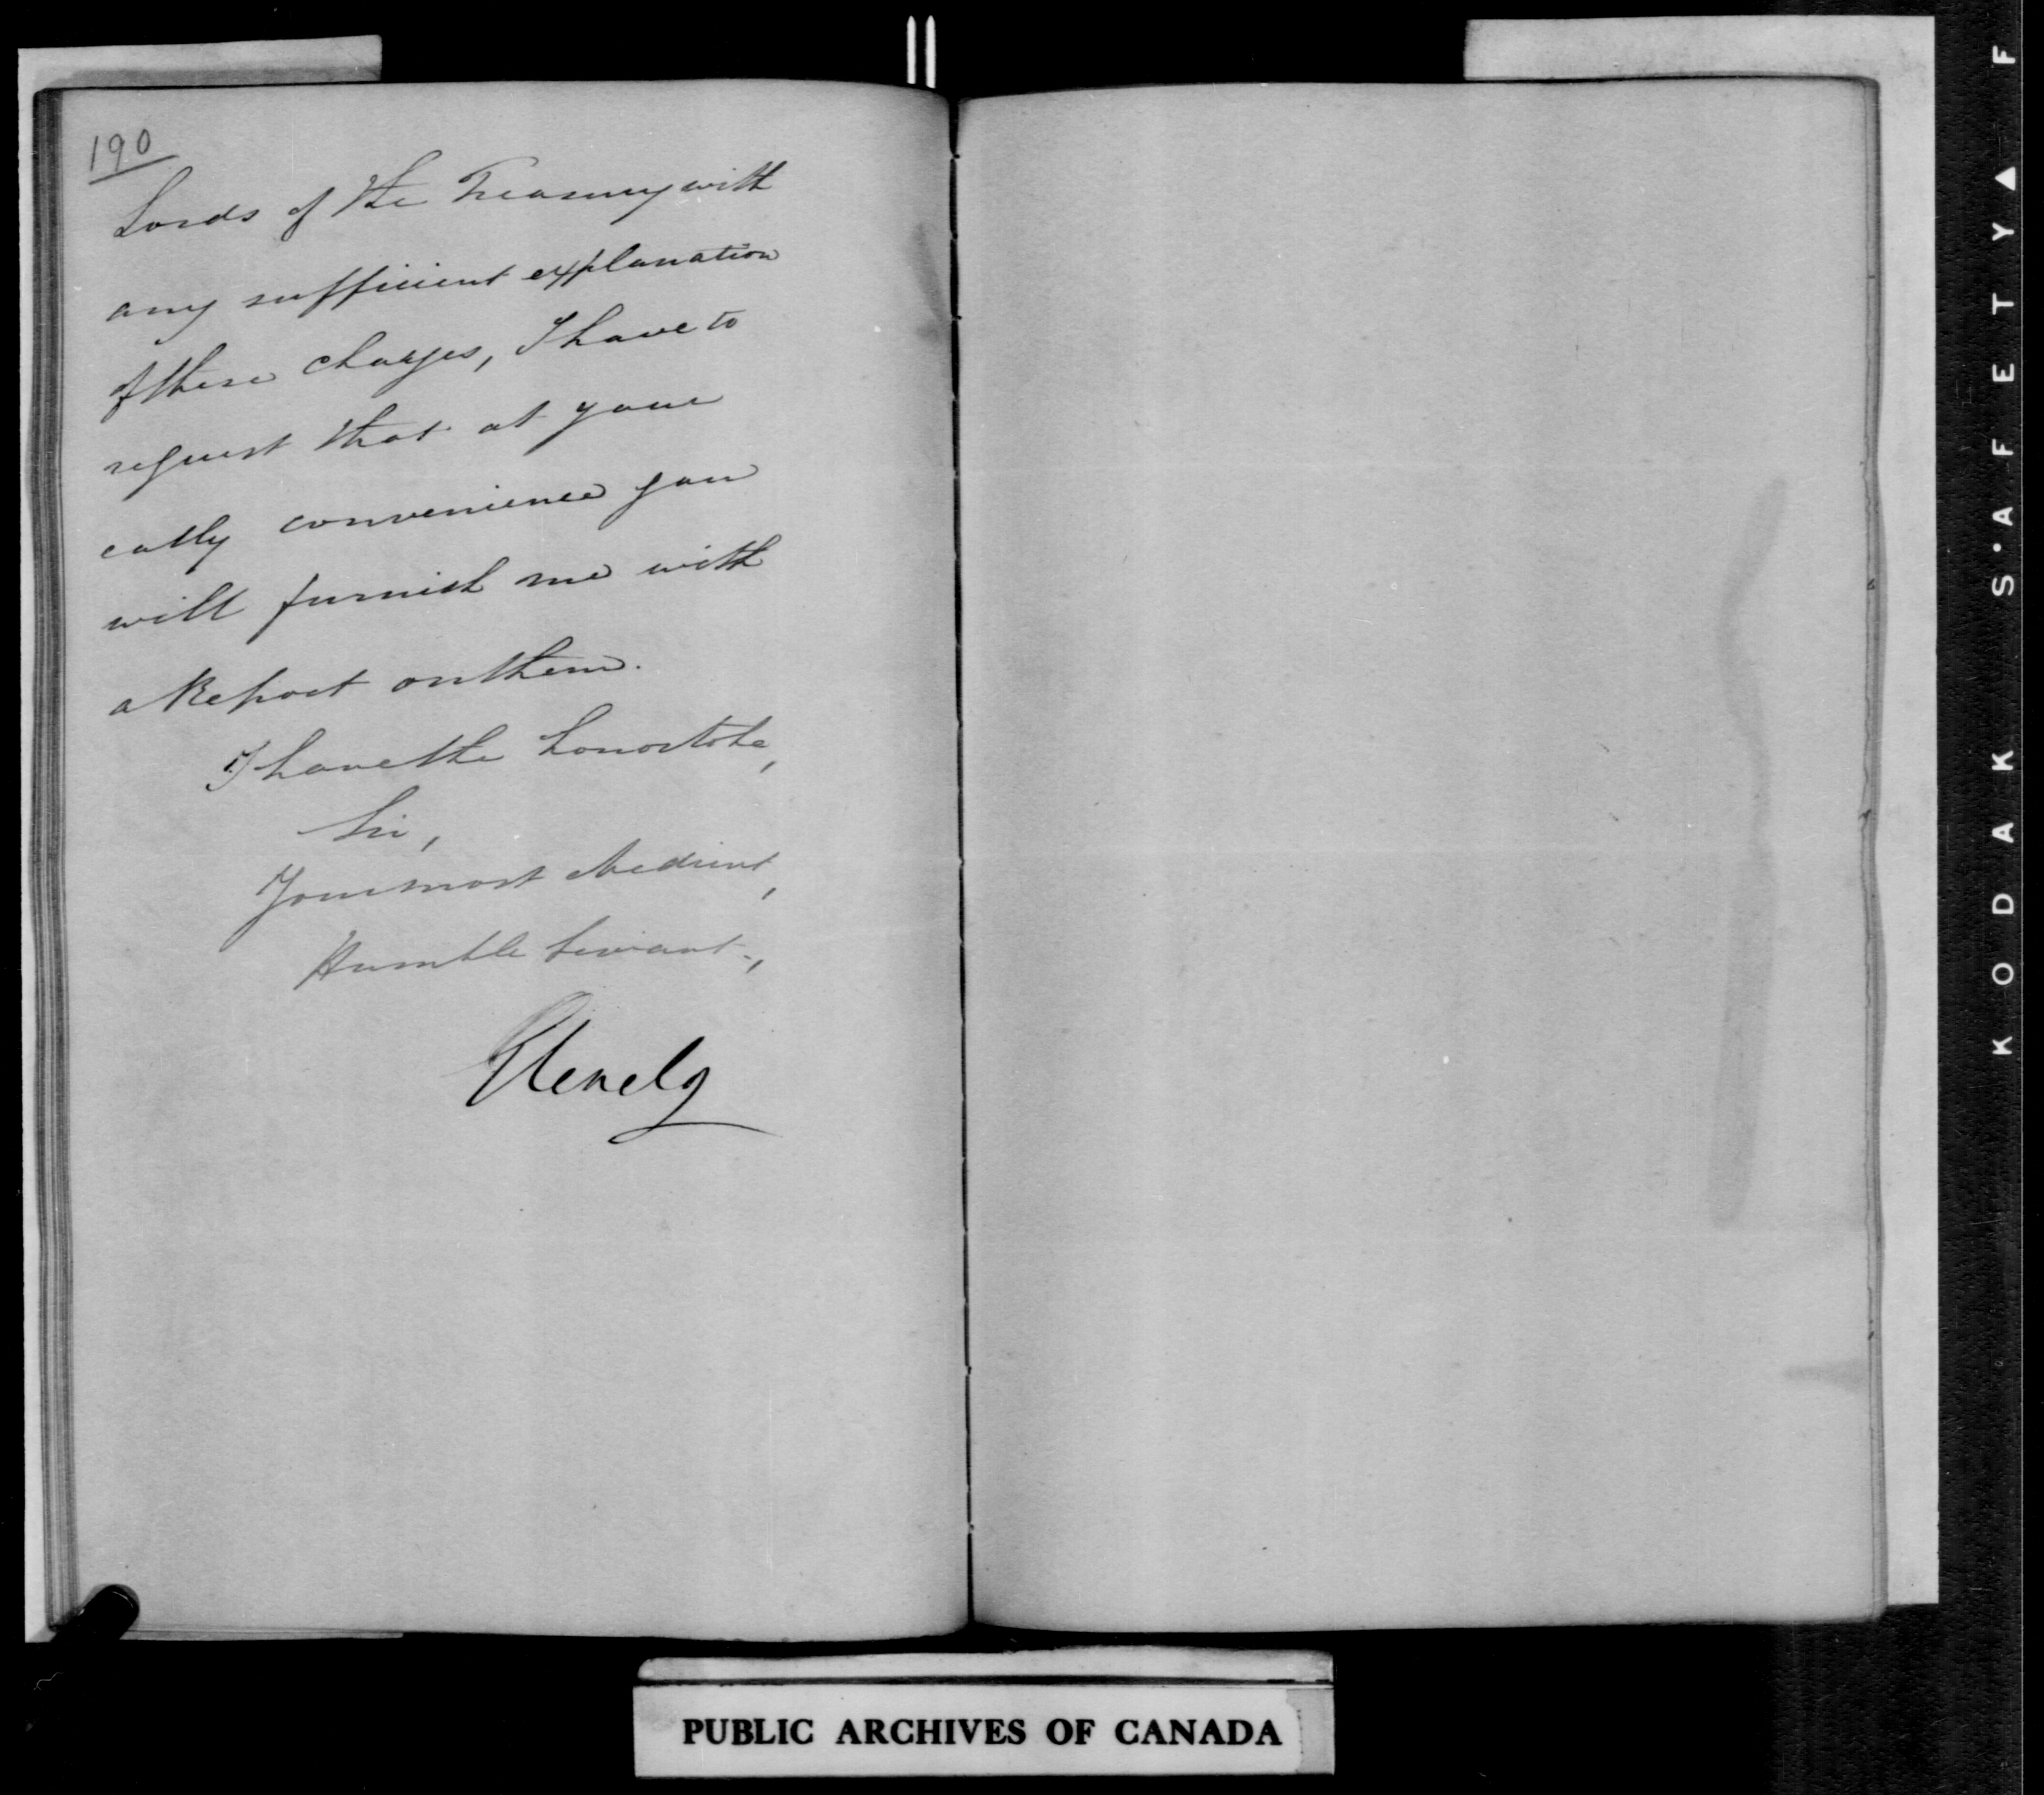 190
Lords of the Treasury with
any sufficient explanation
of these charges, I have to
request that at your
early convenience you
will furnish me with
a Report on them.
I have the honor to be,
Sir,
Your most obedient,
Humble Servant,
Glenelg
PUBLIC ARCHIVES OF CANADA
KODAK S·AFETY▲F